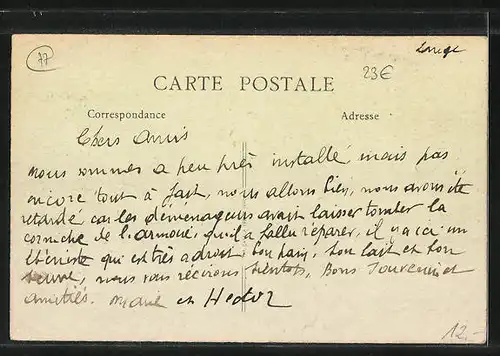 77
Longe
23€
CARTE POSTALE
Correspondance
Adresse
Chers Amis
nous sommes a peu près installé mais pas
encore tout à fait, nous allons bien, nous avons été
retardé car les déménageurs avait laisser tomber la
corniche de l'armoire, qu'il a fallu réparer, il y a ici un
ébéniste qui est très adroit. bon pain, bon lait et bon
beurre, nous vous récrirons bientôt, Bons Souvenir et
amitiés. Marie et Hedor
12.-